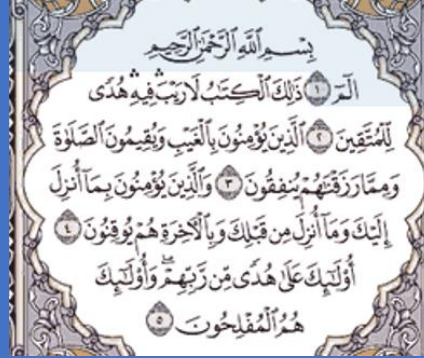 بِسۡمِ ٱللَّهِ ٱلرَّحۡمَٰنِ ٱلرَّحِيمِ
الٓمٓ ١ ذَٰلِكَ ٱلۡكِتَٰبُ لَا رَيۡبَۛ فِيهِۛ هُدٗى
لِّلۡمُتَّقِينَ ٢ ٱلَّذِينَ يُؤۡمِنُونَ بِٱلۡغَيۡبِ وَيُقِيمُونَ ٱلصَّلَوٰةَ
وَمِمَّا رَزَقۡنَٰهُمۡ يُنفِقُونَ ٣ وَٱلَّذِينَ يُؤۡمِنُونَ بِمَآ أُنزِلَ
إِلَيۡكَ وَمَآ أُنزِلَ مِن قَبۡلِكَ وَبِٱلۡأٓخِرَةِ هُمۡ يُوقِنُونَ ٤
أُوْلَٰٓئِكَ عَلَىٰ هُدٗى مِّن رَّبِّهِمۡۖ وَأُوْلَٰٓئِكَ
هُمُ ٱلۡمُفۡلِحُونَ ٥